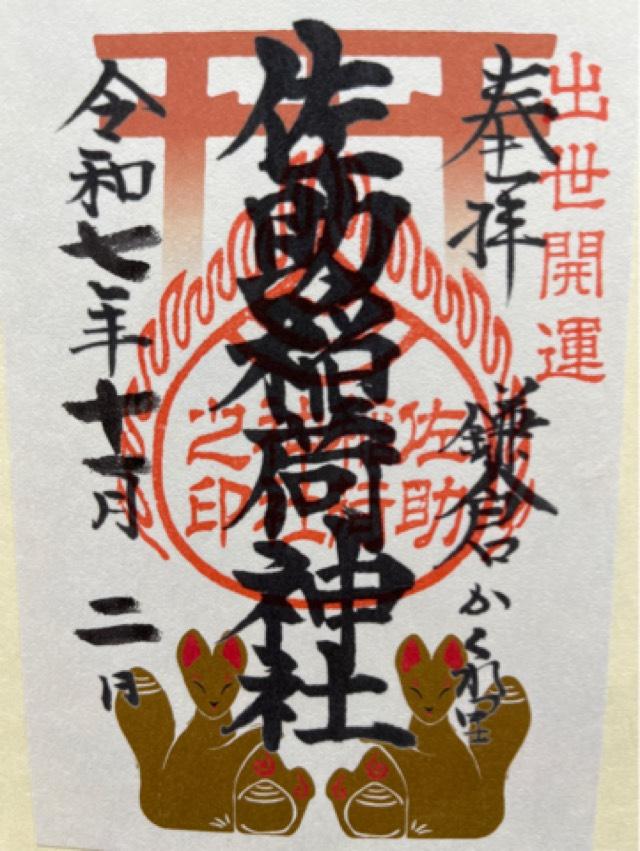 出世開運
奉拝
鎌倉かくれ里
佐助稲荷神社
佐助
稲荷
神社
之印
令和七年十一月二日